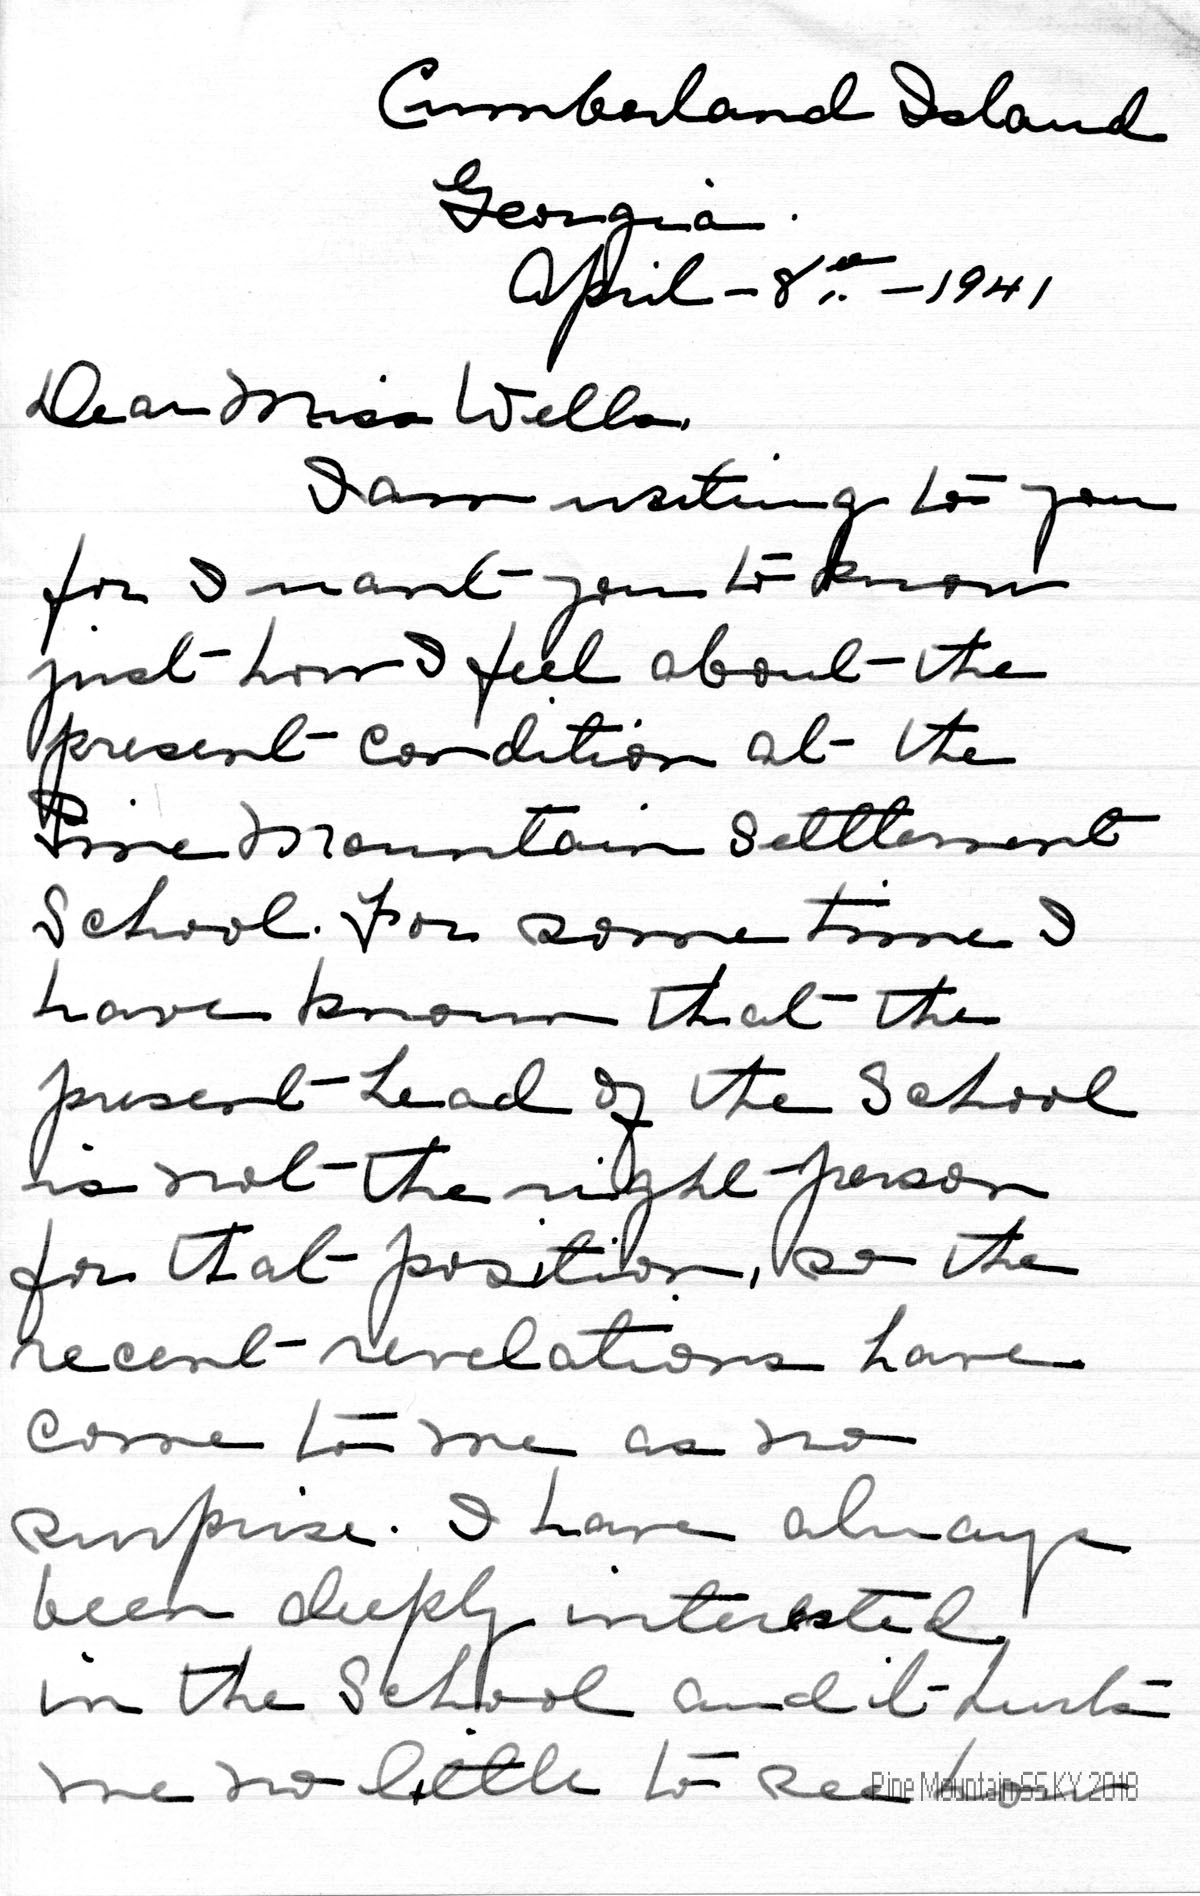 Cumberland Island
Georgia.
April - 8th - 1941
Dear Miss Wells,
I am writing to you
for I want you to know
just how I feel about the
present condition at the
Pine Mountain Settlement
School. For some time I
have known that the
present head of the School
is not the right person
for that position, so the
recent revelations have
come to me as no
surprise. I have always
been deeply interested
in the School and it hurts
me no little to see how
Pine Mountain SS KY 2018